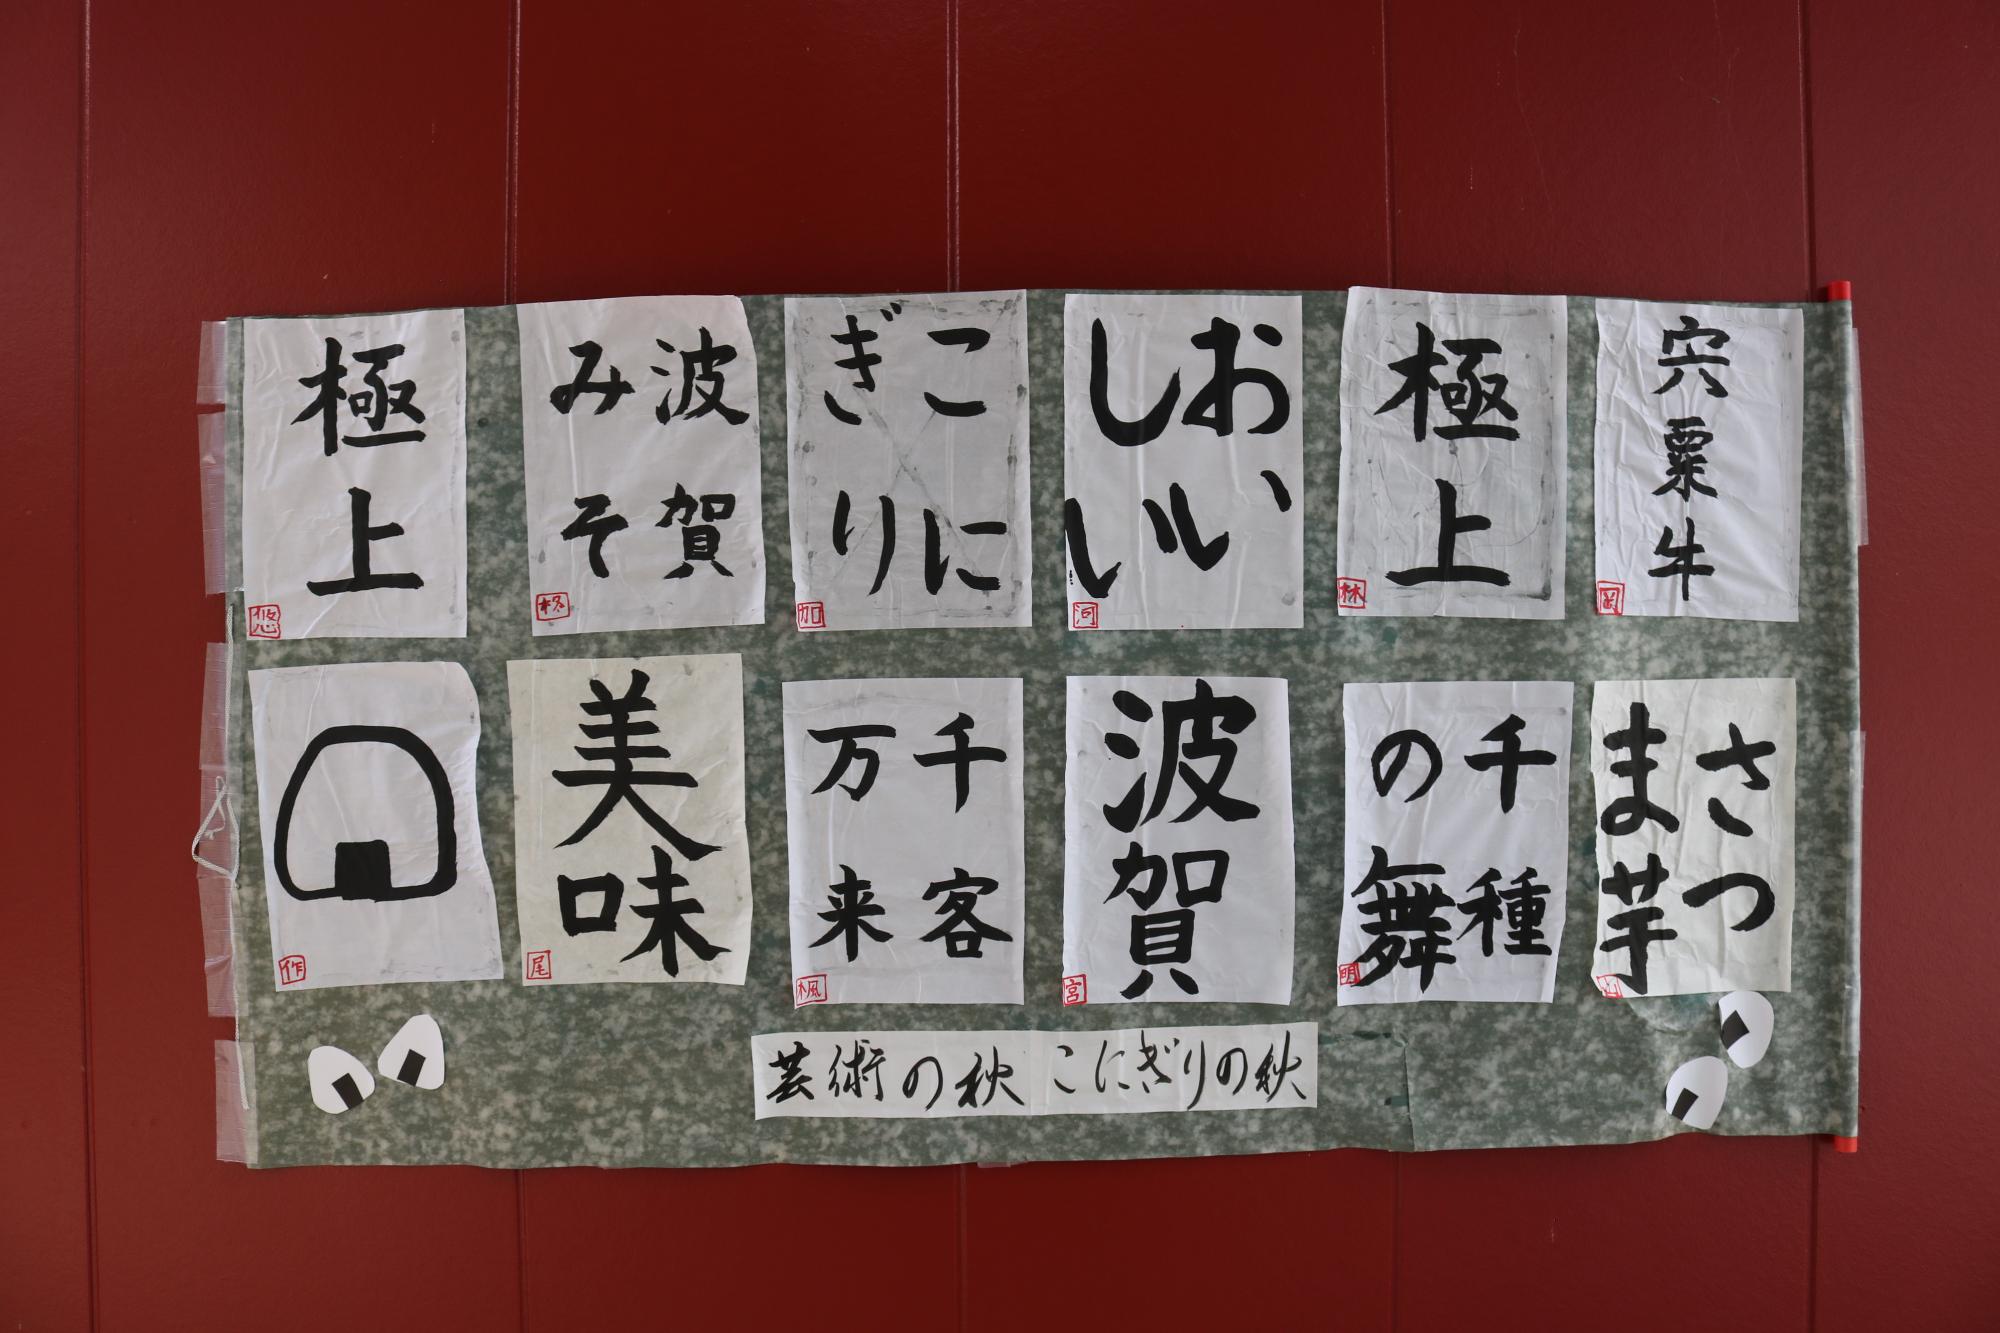 宍粟牛
極上
おいしいい
こにぎり
波賀みそ
極上
さつま芋
千種の舞
波賀
千客万来
美味
芸術の秋 こにぎりの秋
岡
林
河
加
悠
山
明
宮
楓
尾
作